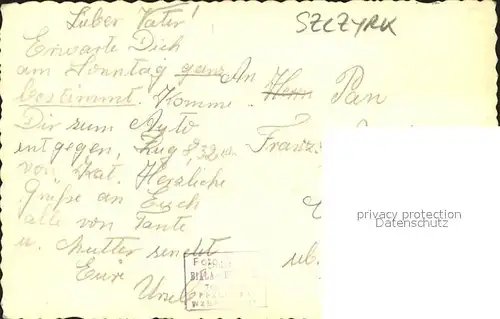 SZCZYRK
Lieber Vater!
Erwarte Dich
am Sonntag ganz
bestimmt. Komme
Dir zum Auto
entgegen, Zug 8,32 a.
von Kat. Herzliche
Grüße an Euch
alle von Tante
u. Mutter sendet
Eure
Ursel
An Herrn Pan
Franz
ul.
privacy protection
Datenschutz